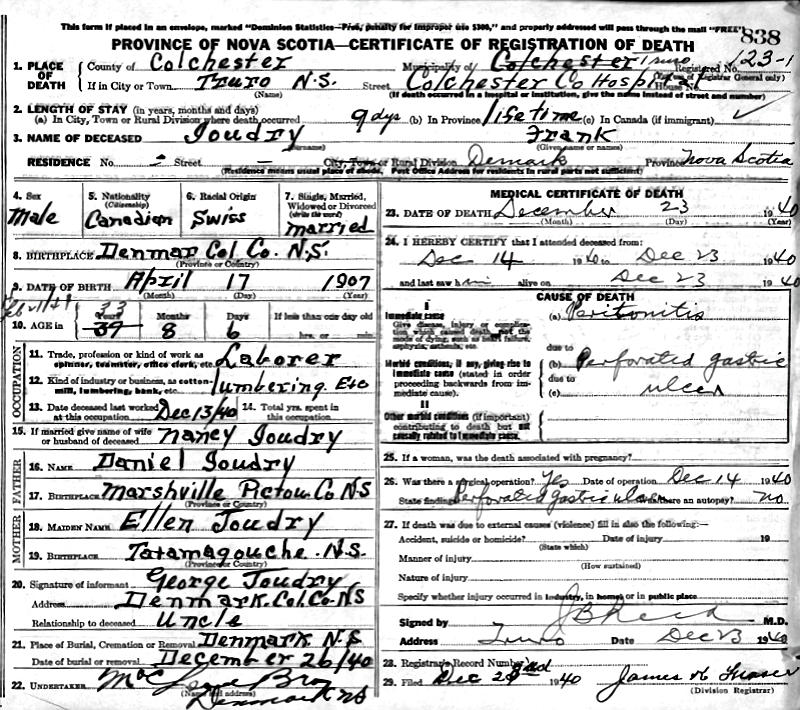 This form if placed in an envelope, marked "Dominion Statistics—Free, penalty for improper use $300," and properly addressed will pass through the mail "FREE"
838
PROVINCE OF NOVA SCOTIA—CERTIFICATE OF REGISTRATION OF DEATH
1. PLACE OF DEATH
County of Colchester
Municipality of Colchester Truro
Registered No. 123-1
(For use of Registrar General only)
If in City or Town Truro N.S. (Name)
Street Colchester Co Hospital House No.
(If death occurred in a hospital or institution, give the name instead of street and number)
2. LENGTH OF STAY (in years, months and days)
(a) In City, Town or Rural Division where death occurred 9 dys (b) In Province lifetime (c) In Canada (if immigrant) ✓
3. NAME OF DECEASED Joudry Frank
(Surname) (Given name or names)
RESIDENCE No. - Street - City, Town or Rural Division Demark Province Nova Scotia
(Residence means usual place of abode. Post Office Address for residents in rural parts not sufficient)
4. Sex
Male
5. Nationality (Citizenship)
Canadian
6. Racial Origin
Swiss
7. Single, Married, Widowed or Divorced (write the word)
married
8. BIRTHPLACE Denmar Col Co. N.S.
(Province or Country)
9. DATE OF BIRTH April 17 1907
(Month) (Day) (Year)
10. AGE in
Years
33
39
Months
8
Days
6
If less than one day old
hrs. or min.
OCCUPATION
11. Trade, profession or kind of work as spinner, teamster, office clerk, etc. Laborer
12. Kind of industry or business, as cotton-mill, lumbering, bank, etc. lumbering. Etc
13. Date deceased last worked at this occupation Dec 13/40 14. Total yrs. spent in this occupation
15. If married give name of wife or husband of deceased Nancy Joudry
FATHER
16. NAME Daniel Joudry
17. BIRTHPLACE Marshville Pictou Co NS
(Province or Country)
MOTHER
18. MAIDEN NAME Ellen Joudry
19. BIRTHPLACE Tatamagouche. N.S.
(Province or Country)
20. Signature of informant George Joudry
Address Denmark. Col. Co. NS
Relationship to deceased Uncle
21. Place of Burial, Cremation or Removal Denmark N.S
Date of burial or removal December 26/40
22. UNDERTAKER
(Name and address) Denmark NS
MEDICAL CERTIFICATE OF DEATH
23. DATE OF DEATH December 23 1940
(Month) (Day) (Year)
24. I HEREBY CERTIFY that I attended deceased from:
Dec 14 1940 to Dec 23 1940
and last saw him alive on Dec 23 1940
CAUSE OF DEATH
I
Immediate cause
Give disease, injury or complication which caused death, not the mode of dying, such as heart failure, asphyxia, asthenia, etc.
(a) Peritonitis
due to
Morbid conditions, if any, giving rise to immediate cause (stated in order proceeding backwards from immediate cause).
(b) Perforated gastric
due to
(c) ulcer
II
Other morbid conditions (if important) contributing to death but not causally related to immediate cause.
25. If a woman, was the death associated with pregnancy?
26. Was there a surgical operation? Yes Date of operation Dec 14 1940
State findings Perforated gastric ulcer Was there an autopsy? no
27. If death was due to external causes (violence) fill in also the following:—
Accident, suicide or homicide? Date of injury 19
(State which)
Manner of injury
(How sustained)
Nature of injury
Specify whether injury occurred in industry, in home, or in public place
Signed by J B Reid M.D.
Address Truro Date Dec 23 1940
28. Registrar's Record Number
29. Filed Dec 1940 James H Fraser
(Division Registrar)